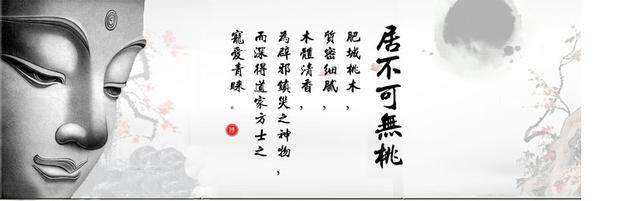 居不可無桃
肥城桃木，
質密細膩，
木體清香，
為辟邪鎮災之神物，
而深得道家方士之
寵愛青睞。